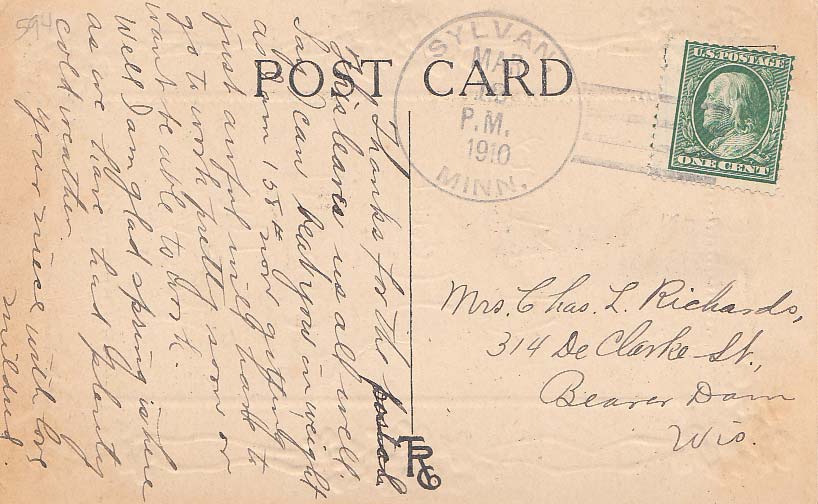 594
POST CARD
SYLVAN
MAR
P.M.
1910
MINN.
U.S. POSTAGE
ONE CENT
Thanks for the postal
this leaves us all well.
Say I can beat you in weight
as I am 158# now getting
just awful will have to
go to work pretty soon or
want be able to work.
Well I am glad spring is here
as we have had plenty
cold weather.
Your niece with love
Mildred.
Mrs. Chas. L. Richards,
314 De Clarke St.,
Beaver Dam
Wis.